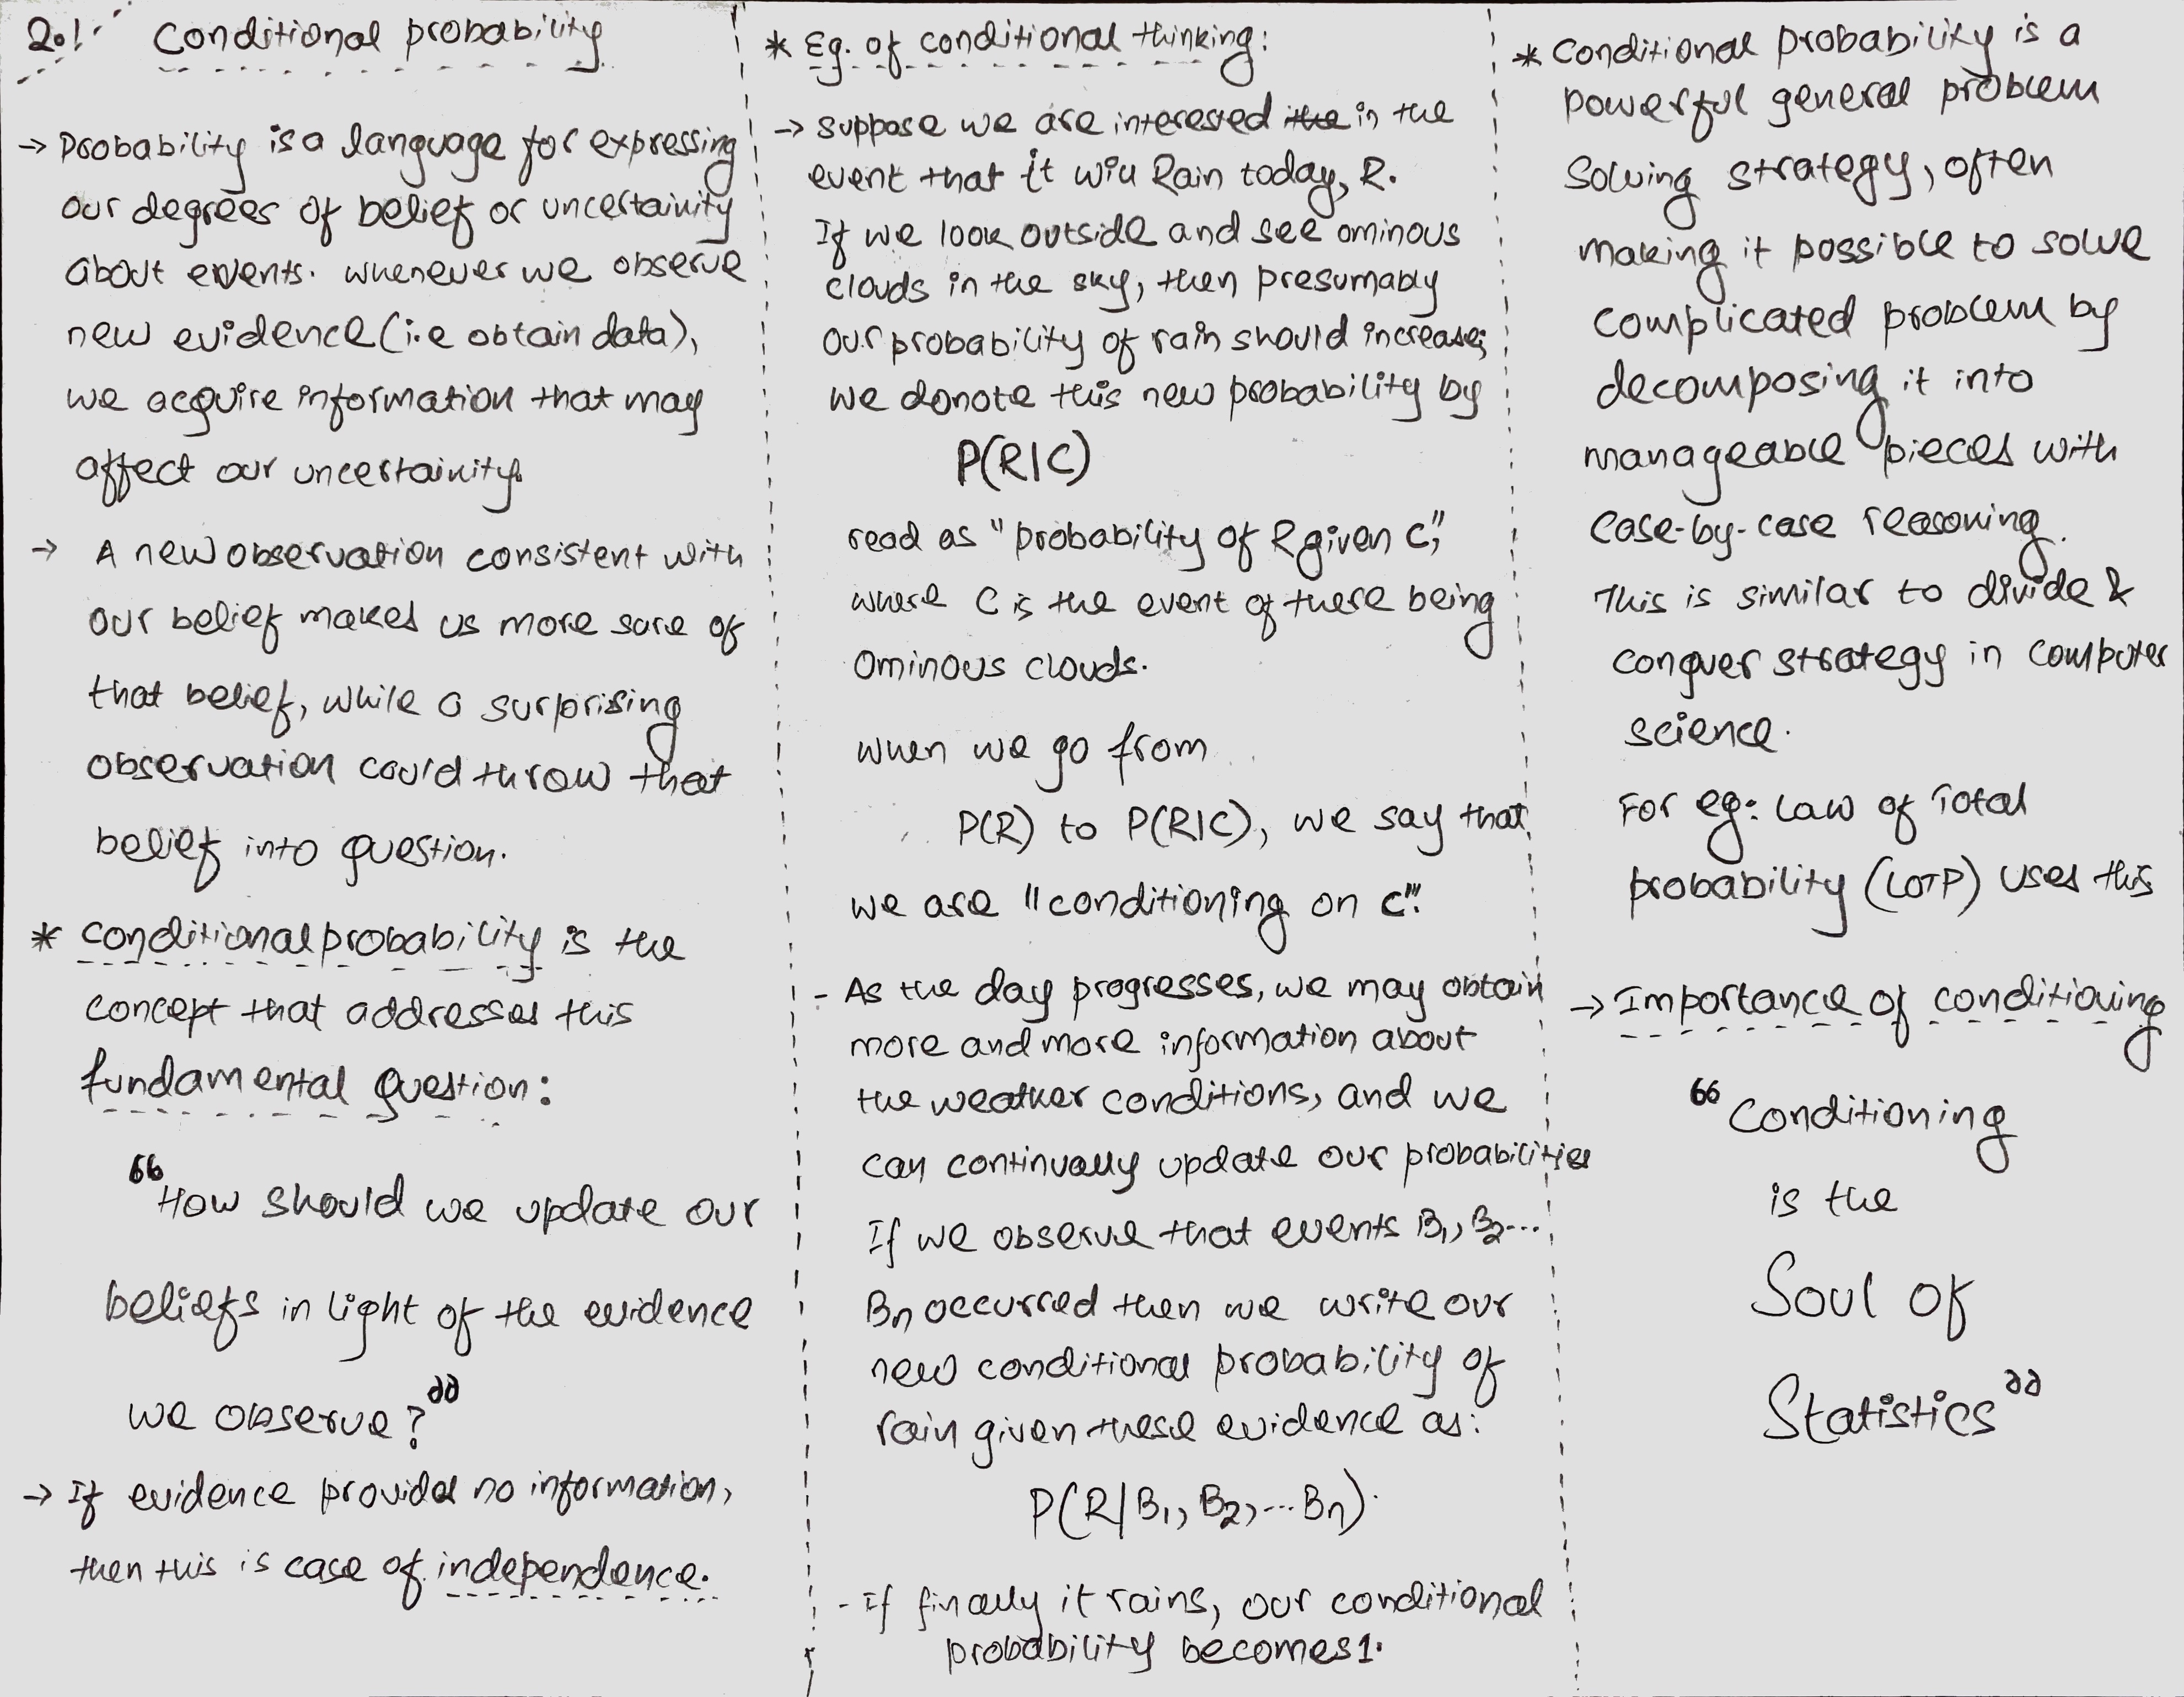 2.1 Conditional probability
→ Probability is a language for expressing
our degrees of belief or uncertainity
about events. whenever we observe
new evidence (i.e obtain data),
we acquire information that may
affect our uncertainity.
→ A new observation consistent with
our belief makes us more sure of
that belief, while a surprising
observation could throw that
belief into question.
* conditional probability is the
concept that addresses this
fundamental question:
“How should we update our
beliefs in light of the evidence
we observe?”
→ If evidence provides no information,
then this is case of independence.
* Eg. of conditional thinking:
→ suppose we are interested the in the
event that it will Rain today, R.
If we look outside and see ominous
clouds in the sky, then presumably
our probability of rain should increase;
we donote this new probability by
P(R|C)
read as "probability of R given C",
where C is the event of there being
ominous clouds.
when we go from
P(R) to P(R|C), we say that
we are "conditioning on C".
- As the day progresses, we may obtain
more and more information about
the weather conditions, and we
can continually update our probabilities
If we observe that events B1, B2...
Bn occurred then we write our
new conditional probability of
rain given these evidence as:
P(R|B1, B2, ... Bn).
- If finally it rains, our conditional
probability becomes 1.
* Conditional probability is a
powerful general problem
Solving strategy, often
making it possible to solve
complicated problem by
decomposing it into
manageable pieces with
case-by-case reasoning.
This is similar to divide &
conquer strategy in computer
science.
For eg: Law of Total
probability (LOTP) uses this
→ Importance of conditioning
“Conditioning
is the
Soul of
Statistics”